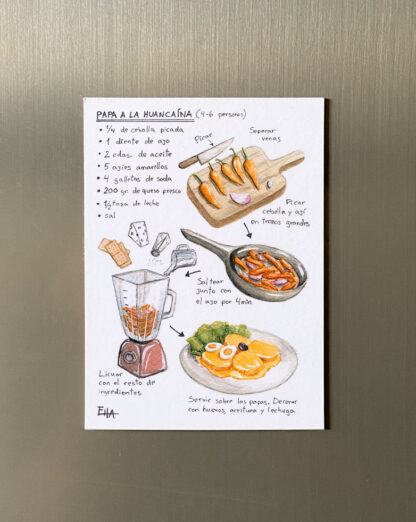 PAPA A LA HUANCAÍNA (4-6 personas)
• 1/4 de cebolla picada
• 1 diente de ajo
• 2 cdas. de aceite
• 5 ajíes amarillos
• 4 galletas de soda
• 200 gr. de queso fresco
• 1/2 taza de leche
• sal
Picar
Separar
venas
Picar
cebolla y ají
en trozos grandes
Saltear
junto con
el ajo por 4min.
Licuar
con el resto de
ingredientes
Servir sobre las papas. Decorar
con huevos, aceituna y lechuga.